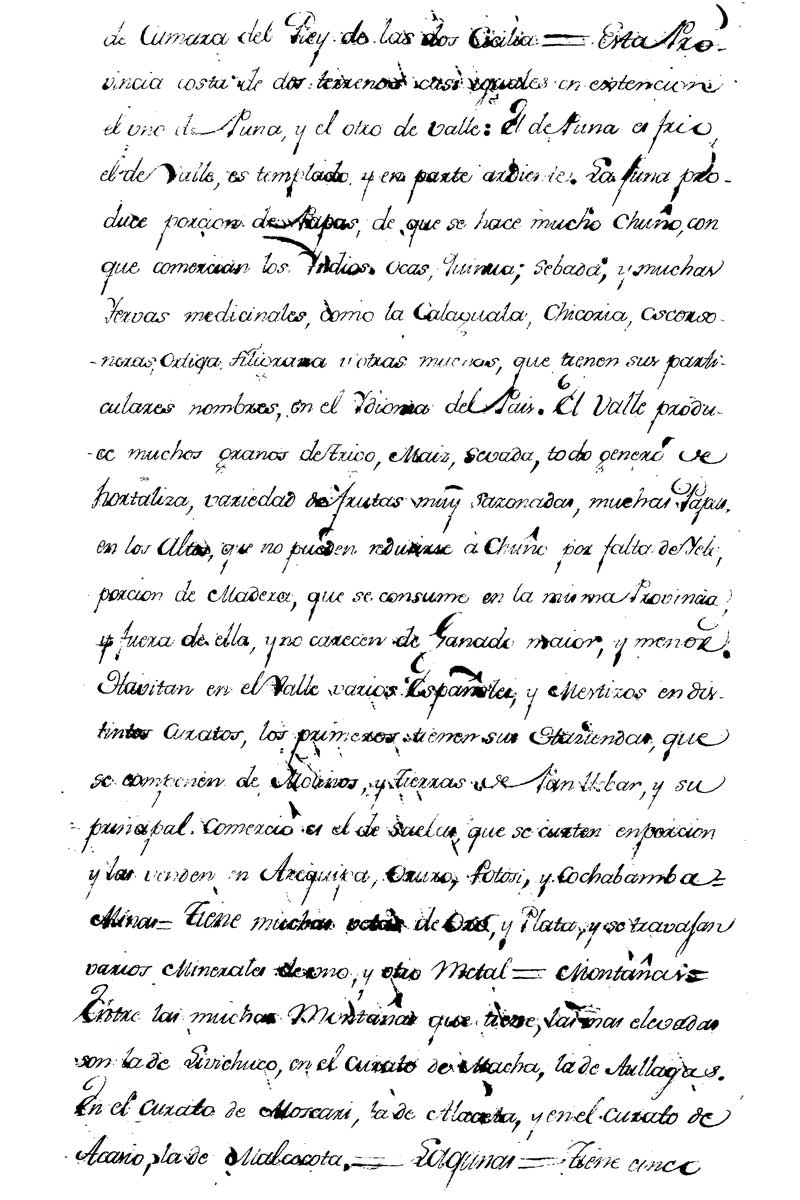 de Cumara del Rey de las dos Cicilia = Esta Pro-
vincia costa de dos terrenos casi yguales en extencion
el uno de Puna, y el otro de valle: El de Puna es frio,
el de Valle, es templado, y en parte ardiente. La Puna pro-
duce porcion de Papas, de que se hace mucho Chuño, con
que comercian los Yndios. Ocas, Quinua; Sebada, y muchas
Yervas medicinales, como la Calaguala, Chicoria, escorso-
neras, Ortiga, Filigrana y otras muchas, que tienen sus parti-
culares nombres, en el Ydioma del Pais. El Valle produ-
ce muchos granos de trigo, Maiz, Sevada, todo genero de
hortaliza, variedad de frutas muy sazonadas, muchas Papas,
en los Altos, que no pueden reducirse à Chuño por falta de Yelo,
porcion de Madera, que se consume en la misma Provincia,
y fuera de ella, y no carecen de Ganado maior, y menor.
Havitan en el Valle varios Españoles, y Mestizos en dis-
tintos Curatos, los primeros tienen sus Haziendas, que
se componen de Molinos, y Tierras de Pan llebar, y su
principal Comercio es el de Suelas, que se curten en porcion
y las venden en Arequipa, Oruro, Potosi, y Cochabamba =
Minas = Tiene muchas vetas de Oro, y Plata, y se travajan
varios Minerales de uno, y otro Metal = Montañas =
Entre las muchas Montañas que tiene, las mas elevadas
son la de Livichuco, en el Curato de Macha, la de Aullagas.
En el Curato de Moscari, la de Alaceta, y en el Curato de
Acasio, la de Malcocota. = Lagunas = Tiene cinco